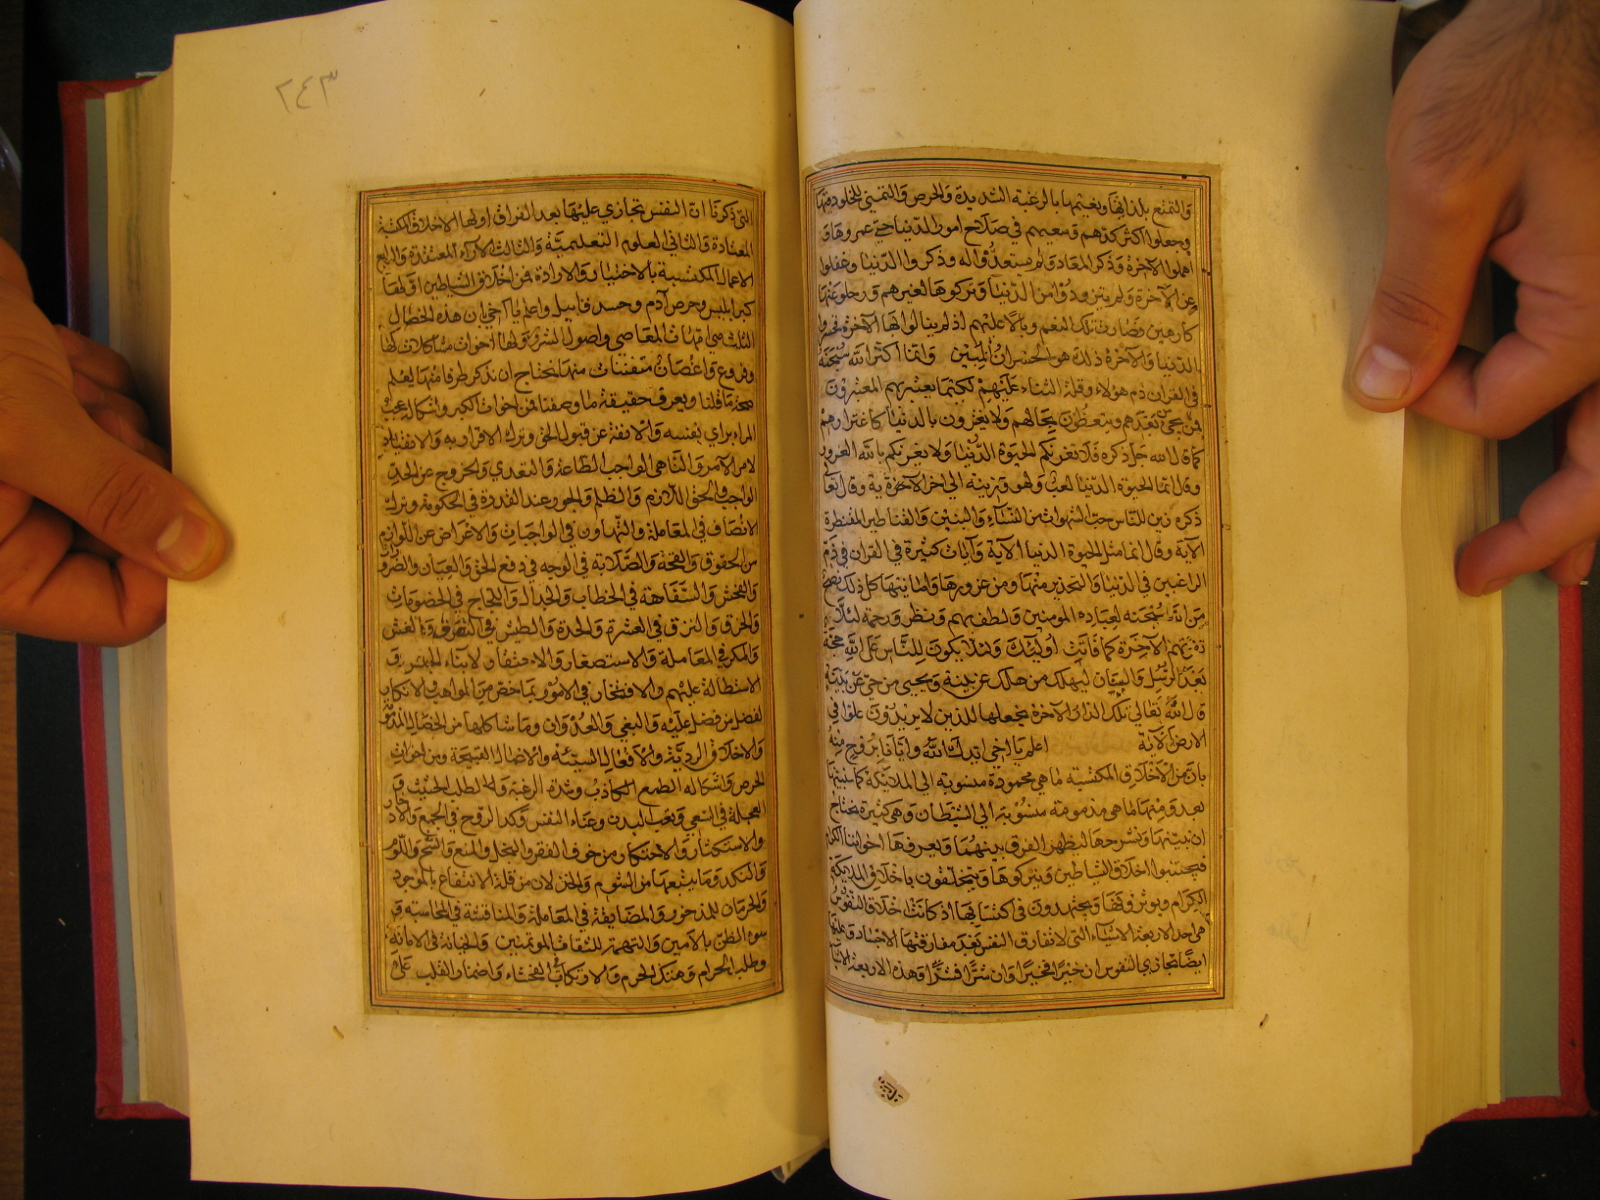 والتمتع بلذاتها ونعيمها بالرغبة الشديدة والحرص والتمني للخلود فيها
وجعلوا اكثر كدهم وسعيهم في صلاح امور الدنيا حتى عمروها و
اهملوا الآخرة وذكر المعاد ولم يستعدوا له وذكروا الدنيا وغفلوا
عن الآخرة ولم يتزودوا من الدنيا وتركوها لغيرهم ورحلوا عنها
كارهين وصارت تلك النعم وبالا عليهم اذ لم ينالوا بها الآخرة فخسروا
الدنيا والآخرة ذلك هو الخسران المبين وانما اكثر الله سبحنه
في القران ذم هؤلاء وقلة الثناء عليهم لكيما يعتبر بهم المعتبرون
ممن يجيء بعدهم ويتعظون بحالهم ولا يغترون بالدنيا كاغترارهم
كما قال الله جل ذكره فلا تغرنكم الحيوة الدنيا ولا يغرنكم بالله الغرور
وقال انما الحيوة الدنيا لعب ولهو وزينة الى اخر الآخرة ية وقال تعالى
ذكره زين للناس حب الشهوات من النساء والبنين والقناطير المقنطرة
الآية وقال انما مثل الحيوة الدنيا الآية وآيات كثيرة في القران في ذم
الراغبين في الدنيا والتحذير منها ومن غرورها وامانيها كل ذلك نصح
من الله سبحنه لعباده المومنين ولطف بهم ونظر ورحمة لئلا
تفوتهم الآخرة كما فاتت اولئك ولئلا يكون للناس على الله حجة
بعد الرسل والبيان ليهلك من هلك عن بينة ويحيى من حي عن بينة
قال الله تعالى تلك الدار الآخرة نجعلها للذين لا يريدون علوا في
الارض الآية اعلم يا اخي ايدك الله وايانا بروح منه
بان من الاخلاق المكتسبة ما هي محمودة منسوبة الى الملائكة كما سنبينها
بعد ومنها ما هي مذمومة منسوبة الى الشيطان وهي كثيرة نحتاج
ان نبينها ونشرحها ليظهر الفرق بينهما ويعرفها اخواننا الكرام
فيجتنبوا اخلاق الشياطين ويتركوها ويتخلقون باخلاق الملائكة
الكرام ويوثروفها ويجتهدون في اكتسابها اذ كانت اخلاق النفوس
هي احد الاربعة الاشياء التي لا تفارق النفس بعد مفارقتها الاجساد وعليها
ايضا تجازي النفوس ان خيرا فخيرا وان شرا فشرا وهذه الاربعة الاشياء
٢٤٣
التي ذكرنا ان النفس تجازي عليها بعد الفراق اولها الاخلاق المكتسبة
المعتادة والثاني العلوم التعليمية والثالث الآراء المعتقدة والرابع
الاعمال المكتسبة بالاختيار والارادة فمن اخلاق الشياطين اولها
كبر ابليس وحرص آدم وحسد قابيل واعلم يا اخي ان هذه الخصال
الثلث هي امهات المعاصي واصول الشرور ولها اخوات مشاكلات لها
وفروع واغصان متفننات منها نحتاج ان نذكر طرفا منها ليعلم
صحة ما قلنا ويعرف حقيقة ما وصفنا فمن اخوات الكبر واشكاله عجب
المراء براي نفسه والانفة عن قبول الحق وترك الاقرار به والانقياد
لامر الآمر والناهي الواجب الطاعة والتعدي والخروج عن الحد
الواجب والحق اللازم والظلم والجور عند القدرة في الحكومة وترك
الانصاف في المعاملة والتهاون في الواجبات والاعراض عن اللوازم
من الحقوق والقحة والصلابة في الوجه في دفع الحق والعيان والضرورات
والفحش والسفاهة في الخطاب والجدال واللجاج في الخصومات
والخرق والنزق في العشرة والحدة والطيش في التصرف والغش
والمكر في المعاملة والاستصغار والاحتقار لابناء الجنس و
الاستطالة عليهم والافتخار في الامور بما خص من المواهب والانكار
لفضل من فضل عليه والبغي والعدوان وما شاكلها من الخصال المذمومة
والاخلاق الردية والافعال السيئة والاعمال القبيحة ومن اخوات
الحرص واشكاله الطمع الكاذب وشدة الرغبة والطلب الحثيث و
العجلة في السعي وتعب البدن وعناء النفس وكد الروح في الجمع والادخار
والاستكثار والاحتكار ومن خوف الفقر والبخل والمنع والشح واللؤم
والنكد وما يتبعها من الشوم والخذلان من قلة الانتفاع بالموجود
والحرمان للمذخور والمضايقة في المعاملة والمناقشة في المحاسبة و
سوء الظن بالامين والتهمة للثقات المؤتمنين والخيانة في الامانة
وطلب الحرام وهتك الحرم والارتكاب الفحشاء واضمار القلب على